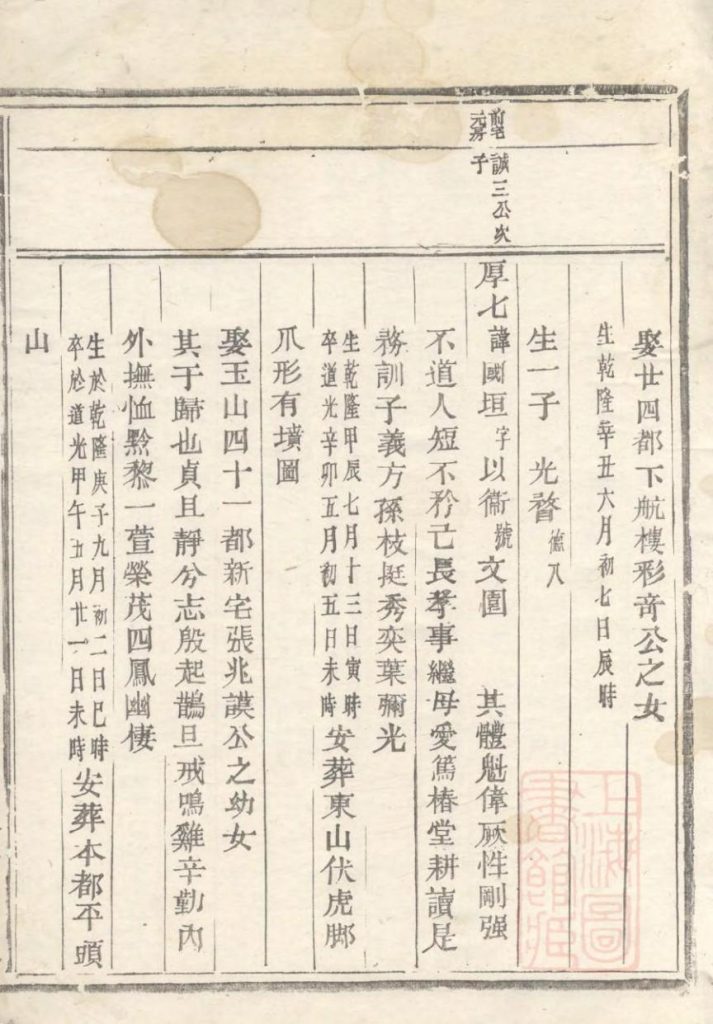 娶廿四都下航樓彩音公之女
生乾隆辛丑六月初七日辰時
生一子　光瞀德八
前宅誠三公次
元房子
厚七諱國垣字以衞號文圍　其體魁偉厥性剛强
不道人短不矜己長孝事繼母愛篤椿堂耕讀是
務訓子義方孫枝挺秀奕葉彌光
生乾隆甲辰七月十三日寅時
卒道光辛卯五月初五日未時
安葬東山伏虎脚
爪形有墳圖
娶玉山四十一都新宅張兆謨公之幼女
其于歸也貞且靜兮志殷起鵲旦戒鳴雞辛勤內
外撫恤黔黎一萱榮茂四鳳幽棲
生於乾隆庚子九月初二日巳時
卒於道光甲午五月廿一日未時
安葬本都平頭
山
上海圖
書館藏